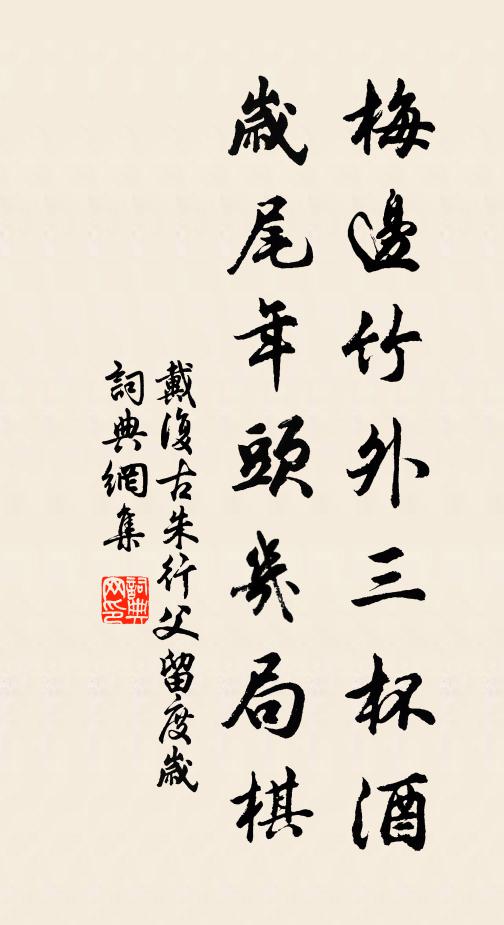 梅邊竹外三杯酒
歲尾年頭幾局棋
戴復古朱行父留度歲
詞典網集
詞典網印